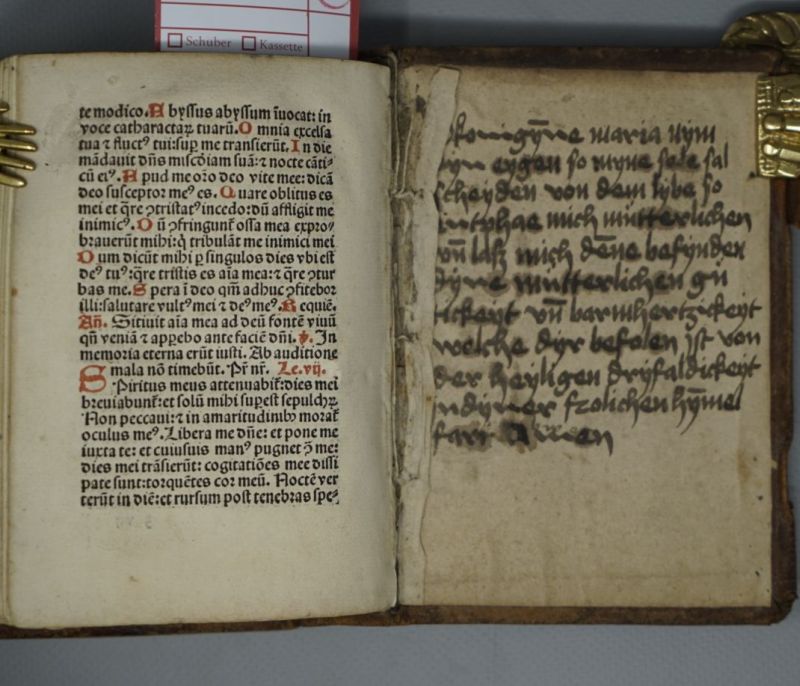 Schuber Kassette
te modico. A byssus abyssum īuocat: in
voce catharactaꝝ tuaꝝ. O mnia excelsa
tua ⁊ fluctꝰ tui: suꝑ me transierūt. I n die
mādauit dn̄s misc̄diam suā: ⁊ nocte cāti-
cū eiꝰ. A pud me or̄o deo vite mee: dicā
deo susceptor meꝰ es. Q uare oblitus es
mei et q̄re ↄtristatꝰ incedo: dū affligit me
inimicꝰ. D ū ↄfringunt̄ ossa mea expro-
brauerūt mihi: q̄ tribulāt me inimici mei
D um dicūt mihi ꝑ singulos dies vbi est
deꝰ tuꝰ: q̄re tristis es aīa mea: ⁊ q̄re ↄtur
bas me. S pera ī deo qm̄ adhuc ↄfitebor
illi: salutare vultꝰ mei ⁊ deꝰ meꝰ. R equiē.
Añ. Sitiuit aīa mea ad deū fontē viuū
qn̄ veniā ⁊ apꝑebo ante faciē dn̄i. ꝟ. In
memoria eterna erūt iusti. Ab auditione
mala nō timebūt. Pr̄ nr̄. Le. vij.
Spiritus meus attenuabit̄: dies mei
breuiabunt̄: et solū mihi suꝑest sepulchꝝ.
Non peccaui: ⁊ in amaritudinibꝫ morat̄
oculus meꝰ. Libera me dn̄e: et pone me
iuxta te: et cuiusuis manꝰ pugnet ↄ̄ me:
dies mei trāsierūt: cogitatiōes mee dissi
pate sunt: torquētes cor meū. Noctē ver
terūt in diē: et rursum post tenebras spe-
konigȳne maria nym
eygen so myne sele sal
scheyden von dem lybe so
mich mütterlichen
vn̄ lass mich dēne befynden
dyne mütterlichen gü
tickeyt vn̄ barmhertzickeyt
welche dyr befolen ist von
der heyligen dryfaldickeyt
yn dyner frolichen hymel
fart Amen